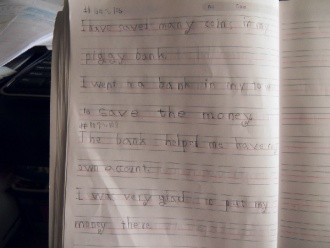 I have saved many coins in my
piggy bank
I went to a bank in my town
to save the money
The bank helped me have my
own account
I was very glad to put my
money there